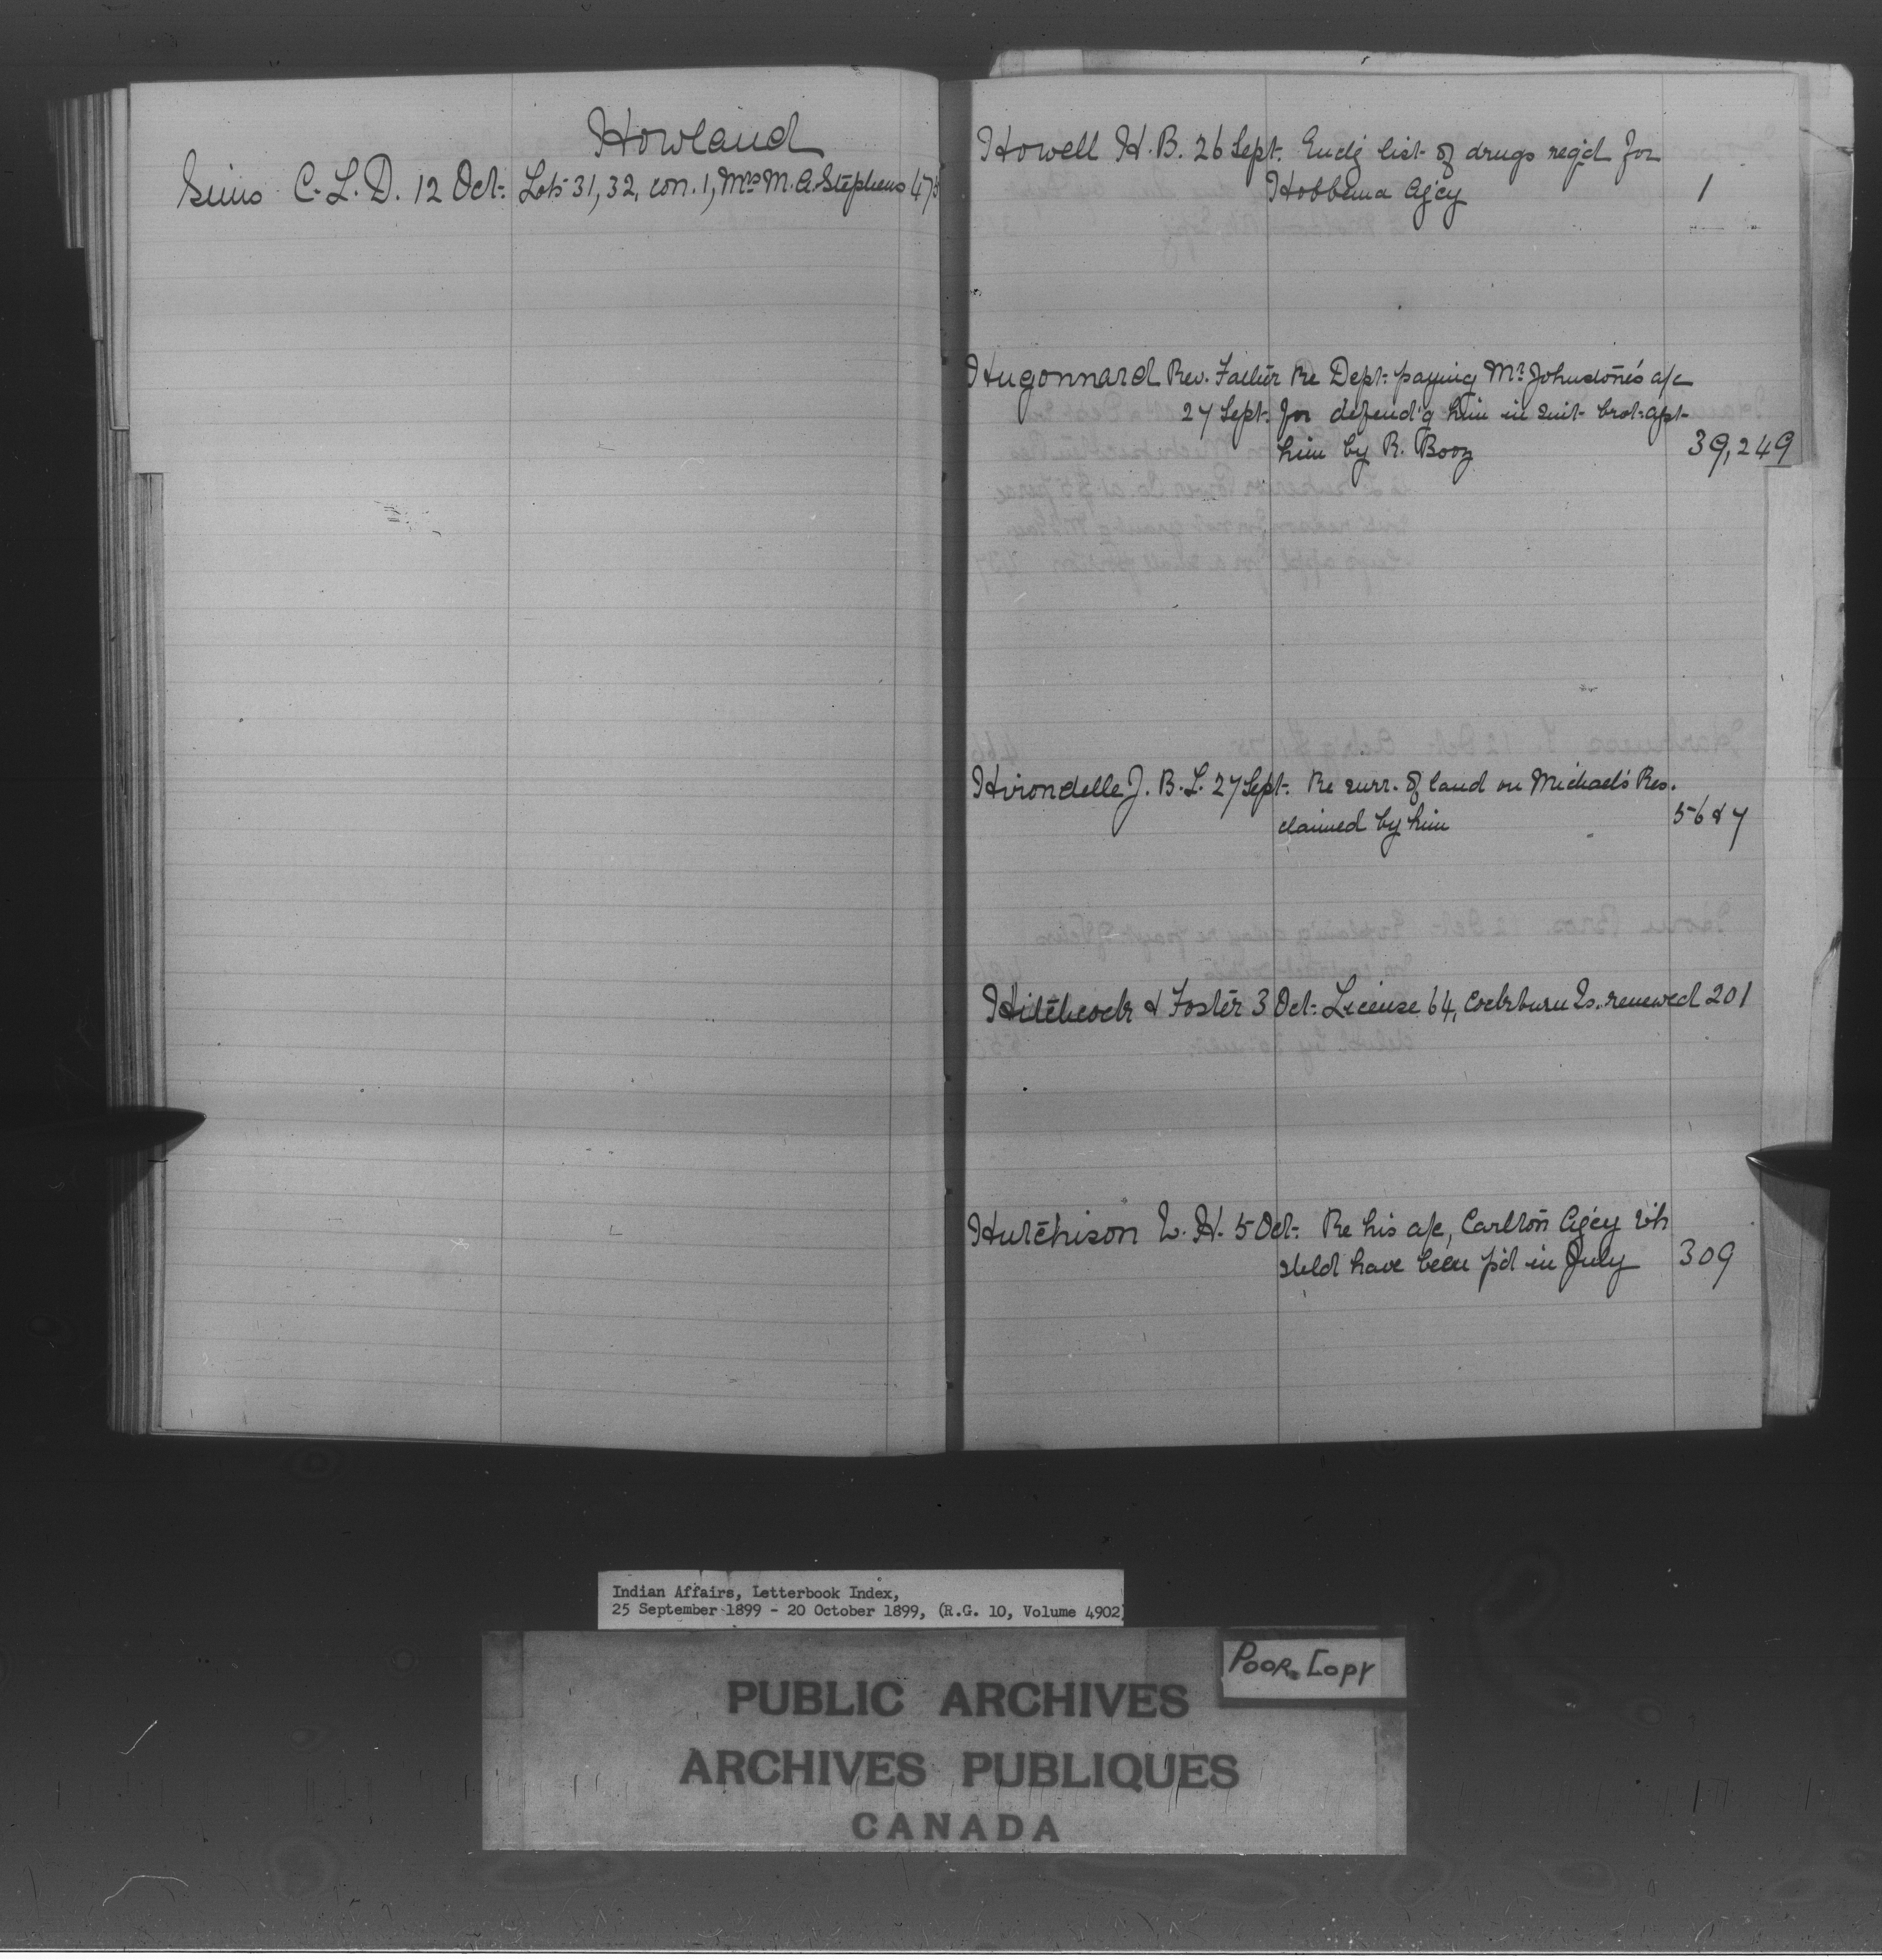 Howland
Sims C. L. D. 12 Oct. Lots 31, 32, con. 1, Mrs M. A. Stephens 475
Howell H. B. 26 Sept. Encl'g list of drugs req'd for
Hobbema Ag'cy 1
Hugonnard Rev. Father Re Dept. paying Mr Johnstone's a/c
27 Sept. for defend'g him in suit brot. agst.
him by R. Booz 39,249
Hirondelle J. B. L. 27 Sept. Re surr. of land on Michael's Res.
claimed by him 56&7
Hitchcock & Foster 3 Oct. License 64, Cockburn Is. renewed 201
Hutchison L. H. 5 Oct. Re his a/c, Carlton Ag'cy wh
shld have been p'd in July 309
Indian Affairs, Letterbook Index,
25 September 1899 - 20 October 1899, (R.G. 10, Volume 4902)
POOR COPY
PUBLIC ARCHIVES
ARCHIVES PUBLIQUES
CANADA